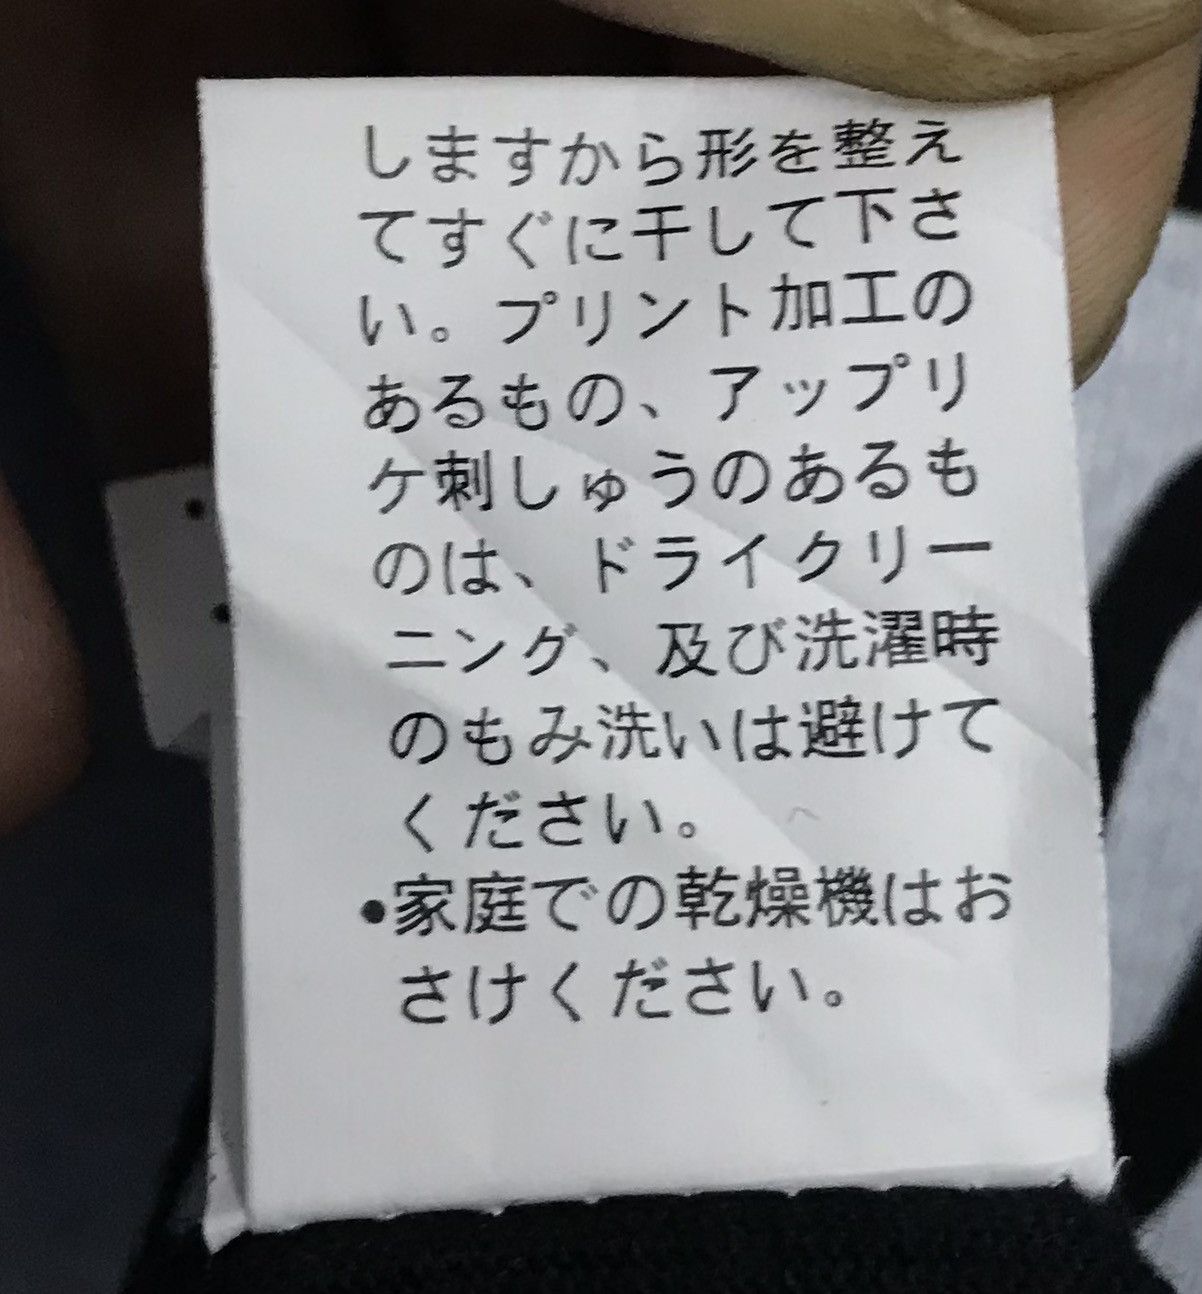 しますから形を整え
てすぐに干して下さ
い。プリント加工の
あるもの、アップリ
ケ刺しゅうのあるも
のは、ドライクリー
ニング、及び洗濯時
のもみ洗いは避けて
ください。
•家庭での乾燥機はお
さけください。